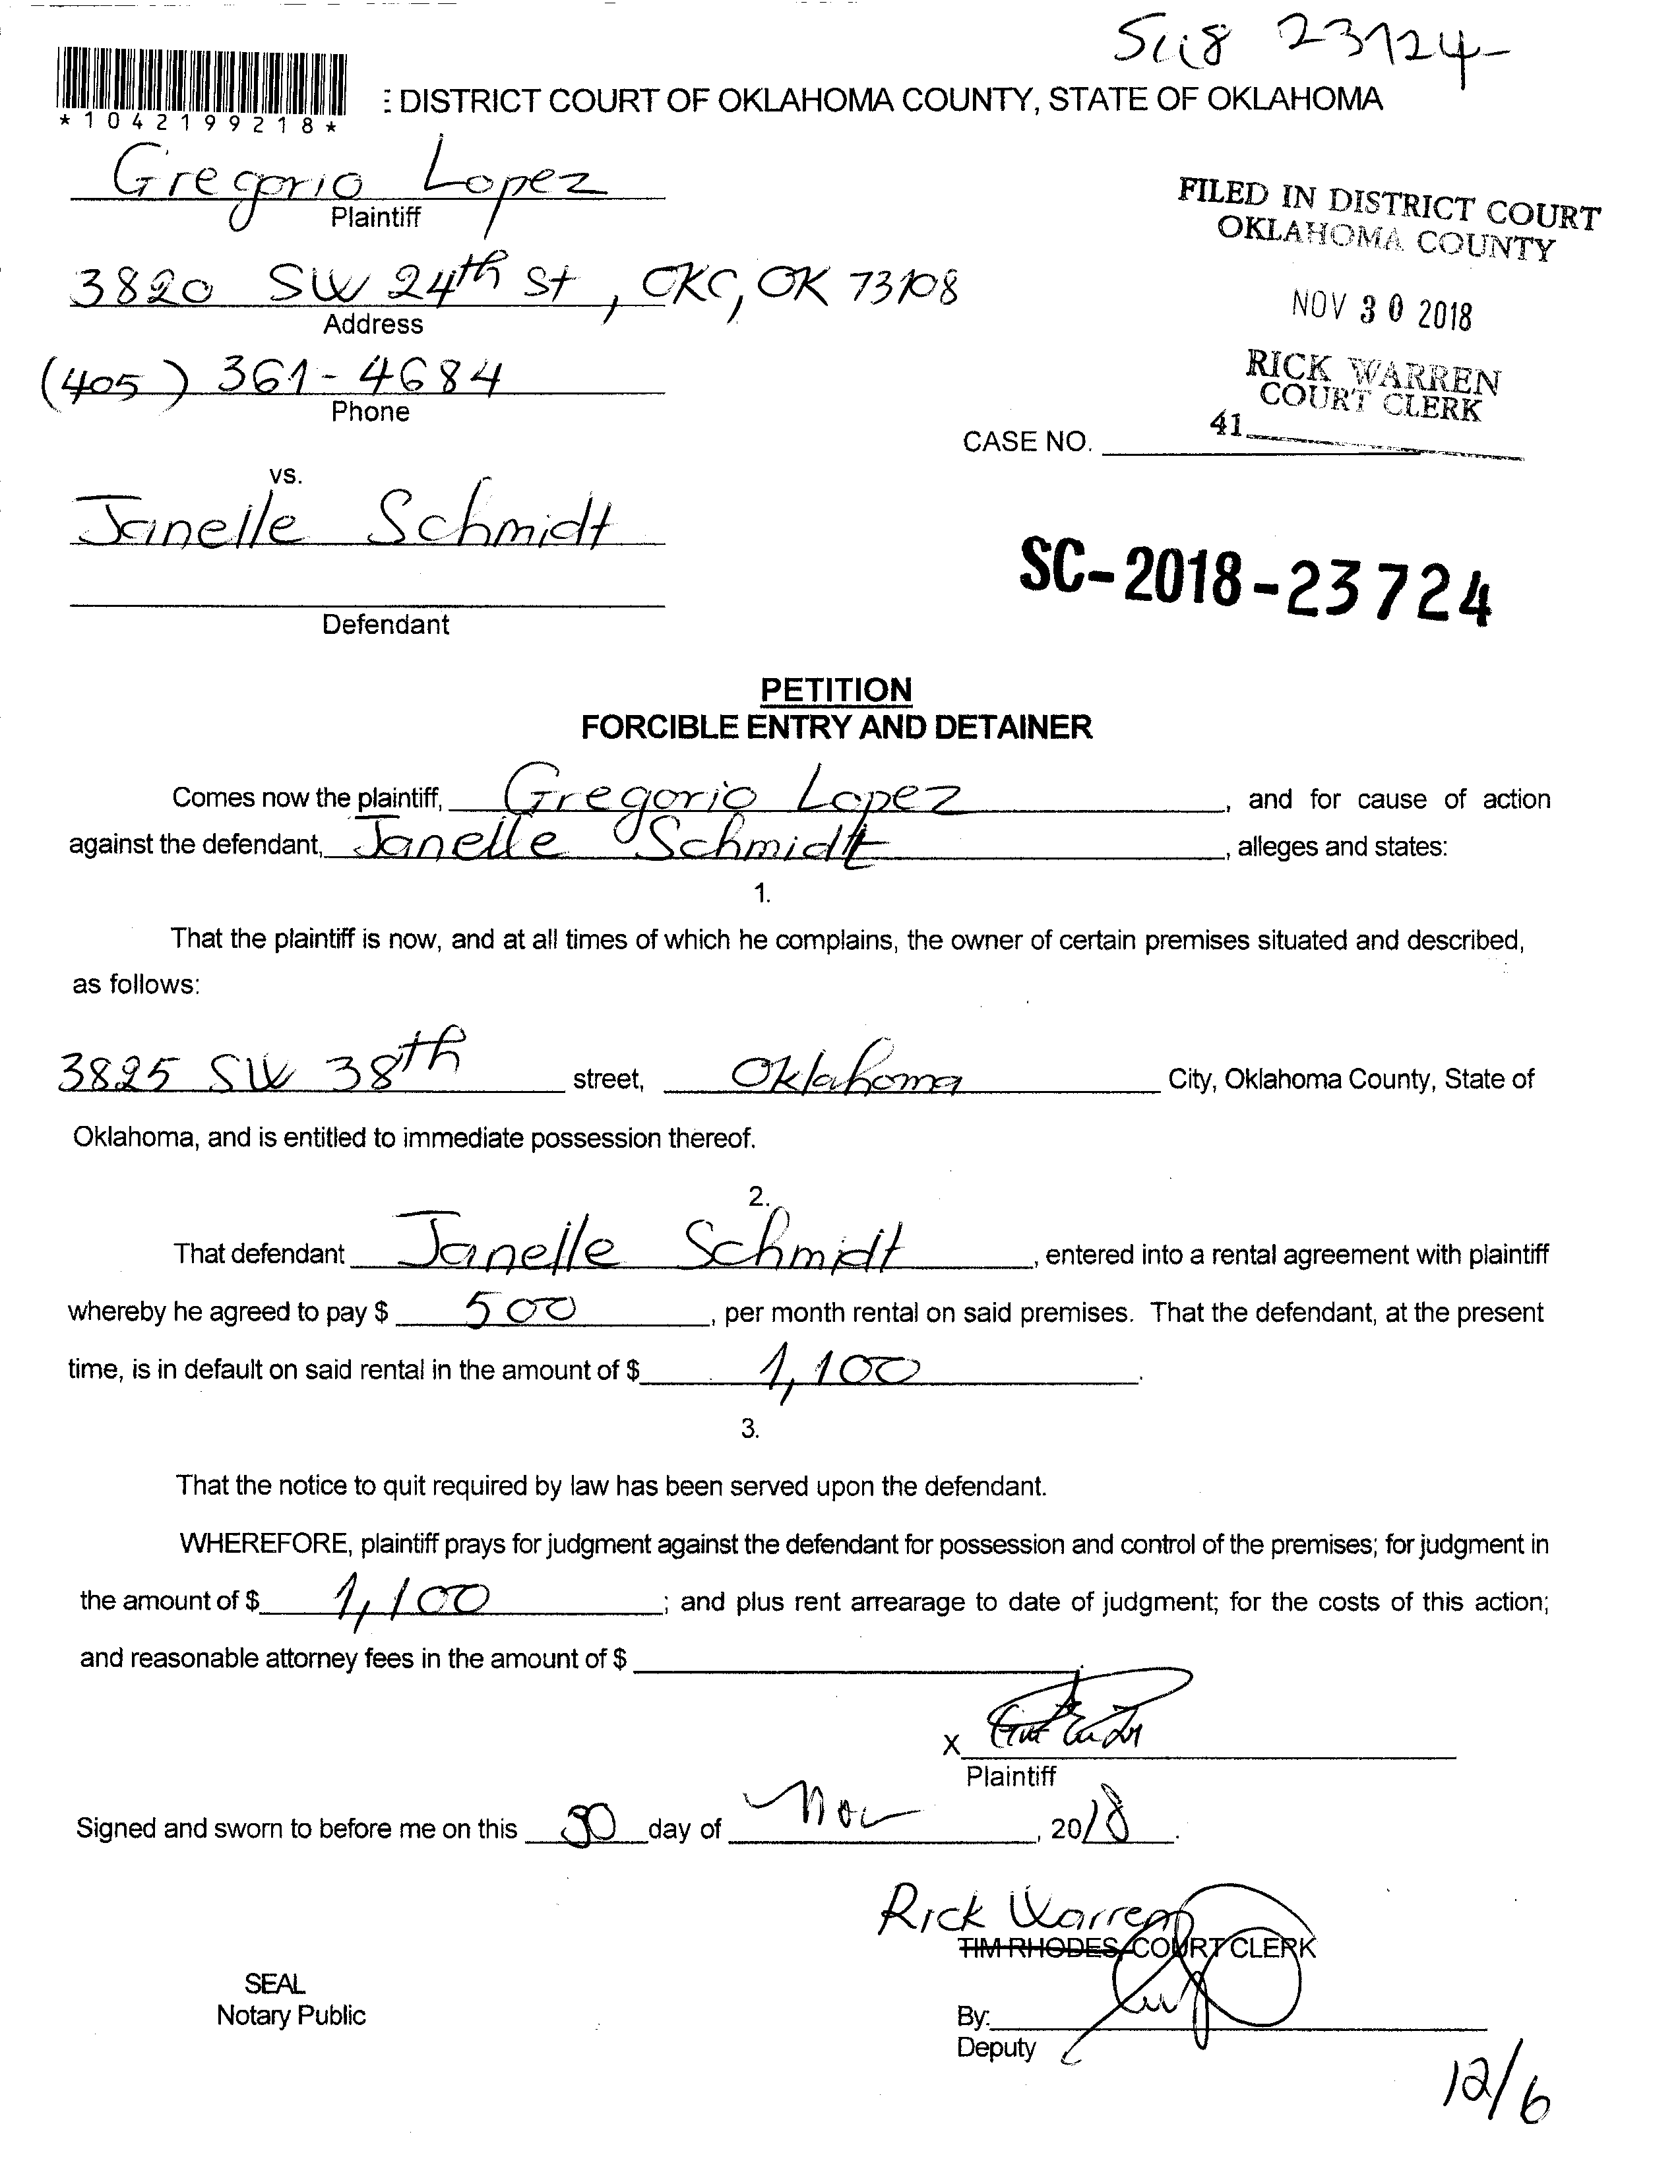 Sc18 23724
*1042199218*
E DISTRICT COURT OF OKLAHOMA COUNTY, STATE OF OKLAHOMA
Gregorio Lopez
Plaintiff
FILED IN DISTRICT COURT
OKLAHOMA COUNTY
3820 SW 24th St, OKC, OK 73108
Address
NOV 30 2018
(405) 361-4684
Phone
RICK WARREN
COURT CLERK
41
CASE NO.
vs.
Janelle Schmidt
SC-2018-23724
Defendant
PETITION
FORCIBLE ENTRY AND DETAINER
Comes now the plaintiff, Gregorio Lopez, and for cause of action
against the defendant, Janelle Schmidt, alleges and states:
1.
That the plaintiff is now, and at all times of which he complains, the owner of certain premises situated and described,
as follows:
3825 SW 38th street, Oklahoma City, Oklahoma County, State of
Oklahoma, and is entitled to immediate possession thereof.
2.
That defendant Janelle Schmidt, entered into a rental agreement with plaintiff
whereby he agreed to pay $ 500, per month rental on said premises. That the defendant, at the present
time, is in default on said rental in the amount of $ 1,100.
3.
That the notice to quit required by law has been served upon the defendant.
WHEREFORE, plaintiff prays for judgment against the defendant for possession and control of the premises; for judgment in
the amount of $ 1,100; and plus rent arrearage to date of judgment; for the costs of this action;
and reasonable attorney fees in the amount of $
X
Plaintiff
Signed and sworn to before me on this 30 day of Nov, 2018.
Rick Warren
TIM RHODES, COURT CLERK
SEAL
Notary Public
By:
Deputy
12/6